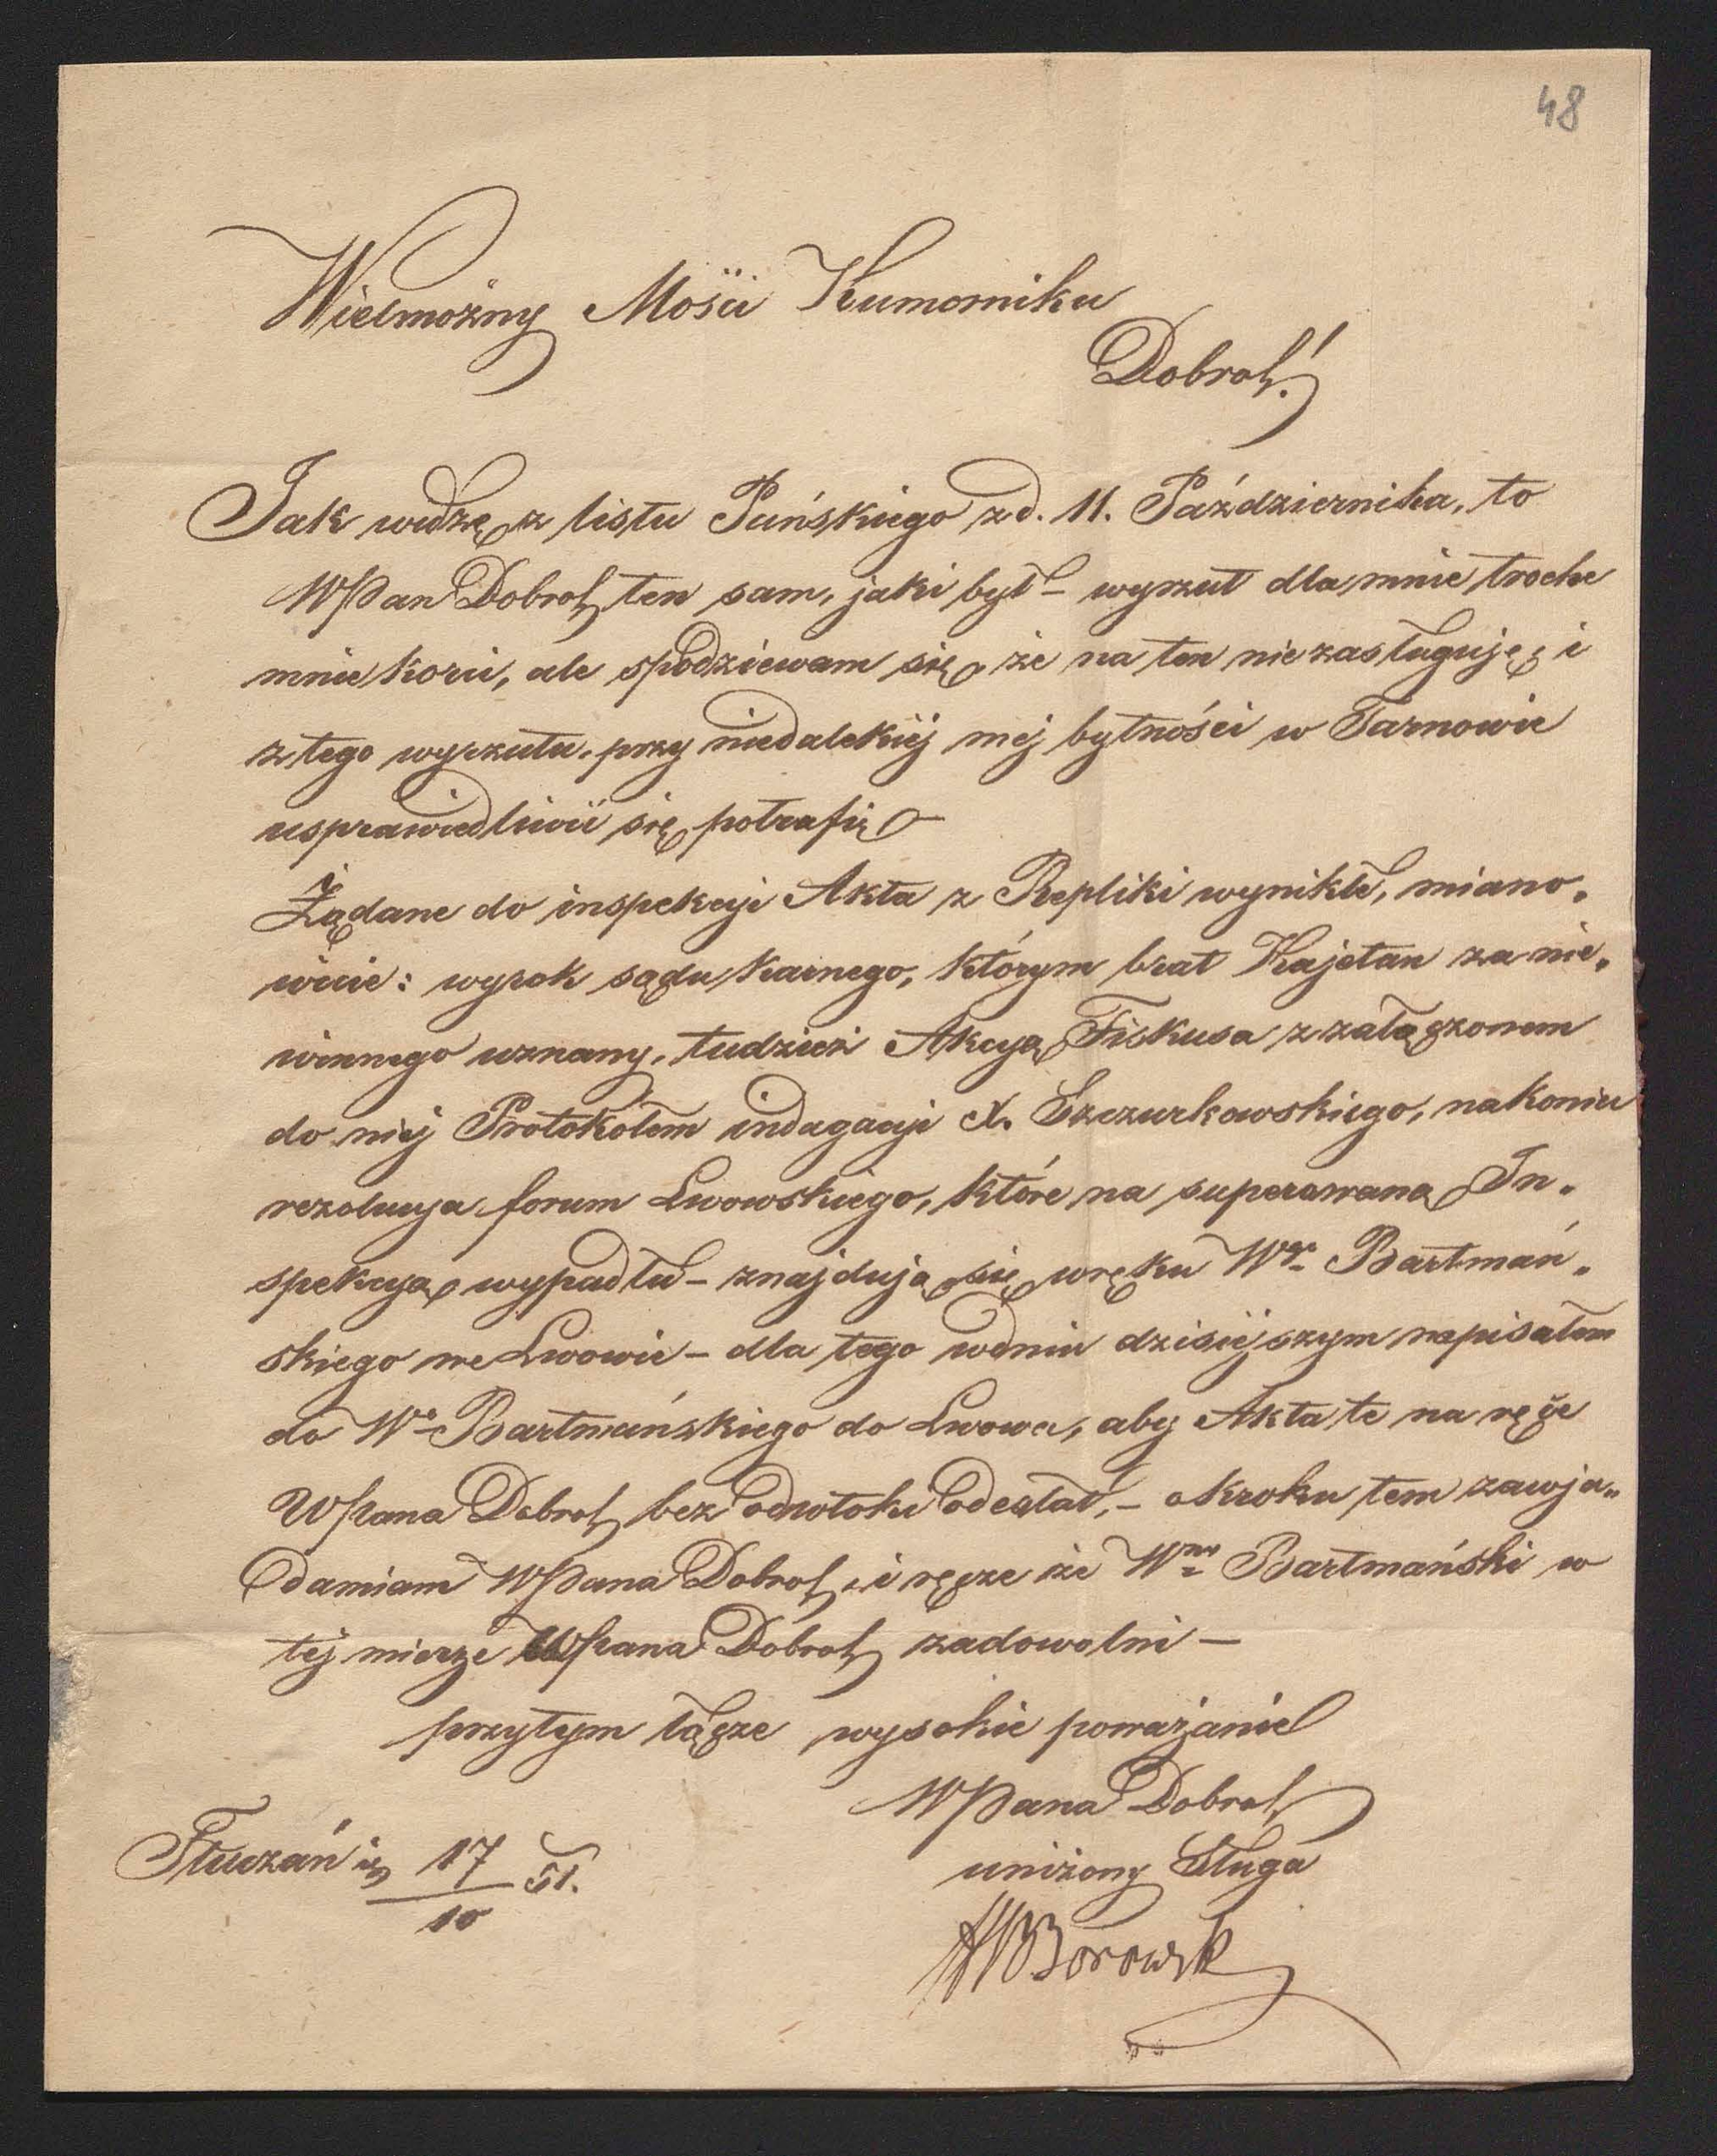 48
Wielmożny Mości Kumorniku
Dobrch!
Jak widzę z listu Pańskiego z d. 11. Października, to
WPan Dobrch ten sam, jaki był – wyrzut dla mnie troche
mnie korci, ale spodziewam się że na ten nie zasługuję, i
z tego wyrzutu, przy niedalekiéj méj bytności w Tarnowie
usprawiedliwić się potrafię –
Żądane do inspekcyi Akta z Repliki wynikłé, miano-
wicie: wyrok sądu karnego, którym brat Kajetan za nie-
winnego uznany, tudzież Akcyą Fiskusa z załączonem
do niéj Protokołem indagacyi X. Szczurkowskiego, nakoniec
rezolucya forum Lwowskiego, które na superowaną In-
spekcyą wypadłu – znajdują się w ręku Wgo Bartmań-
skiego we Lwowie – dla tego w dniu dzisiéjszym napisałem
do Wo Bartmańskiego do Lwowa, aby Akta te na ręce
WPana Dobrch bez odwłoku odesłał, – o kroku tem zawja-
damiam WPana Dobrch, i ręcze że Wny Bartmański w
téj mierze WPana Dobrch zadowolni –
przytym łącze wysokie poważanie
WPana Dobrch
uniżony Sługa
Borowsk
17/10 51.